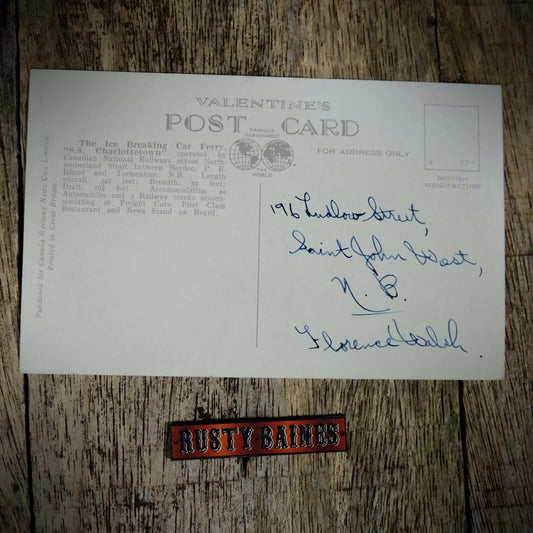 VALENTINE'S
POST CARD
FAMOUS
THROUGHOUT
THE
WORLD
FOR ADDRESS ONLY
BRITISH
MANUFACTURE
The Ice Breaking Car Ferry,
"S.S. Charlottetown" operated by
Canadian National Railways across North-
umberland Strait between Borden, P. E.
Island and Tormentine, N.B. Length
overall, 342 feet; Breadth, 59 feet;
Draft, 19½ feet. Accommodating 40
Automobiles and 3 Railway tracks accom-
modating 16 Freight Cars. First Class
Restaurant and News Stand on Board.
Published for Canada Railway News Co., Limited
Printed in Great Britain
196 Ludlow Street,
Saint John West,
N. B.
Florence Walsh.
RUSTY BAINES